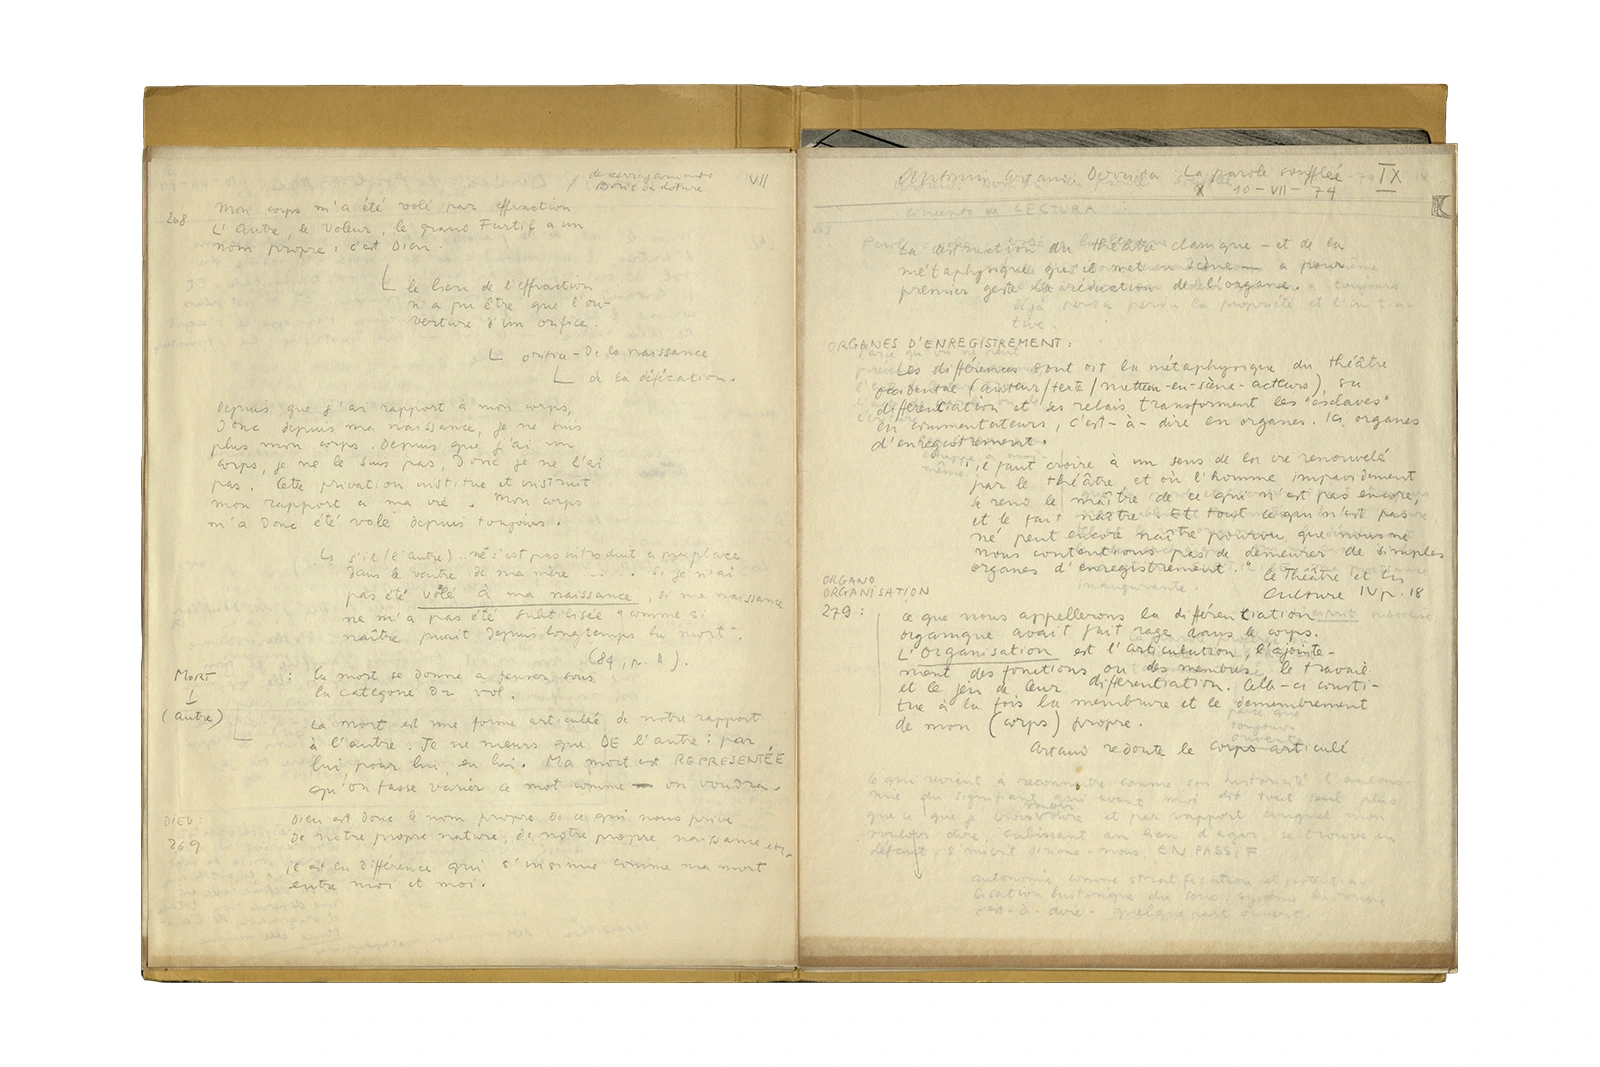 VII
268
Mon corps m'a été volé par effraction
L'Autre, le Voleur, le grand Furtif a un
nom propre : c'est Dieu.
le lieu de l'effraction
n'a pu être que l'ou-
verture d'un orifice.
orifice - de la naissance
de la défécation.
Depuis que j'ai rapport à mon corps,
Donc depuis ma naissance, je ne suis
plus mon corps. Depuis que j'ai un
corps, je ne le suis pas, Donc je ne l'ai
pas. Cette privation institue et instruit
mon rapport a ma vie. Mon corps
m'a Donc été volé depuis toujours.
s'il (l'autre) .. ne s'est pas introduit a ma place
dans le ventre de ma mère ..... si je n'ai
pas été volé à ma naissance, si ma naissance
ne m'a pas été subtilisée "comme si
naître puait depuis longtemps la mort".
(84, p. 11).
MORT : la mort se donne a penser sous
la catégorie du vol.
(autre)
La mort est une forme articulée de notre rapport
à l'autre. Je ne meurs que DE l'autre : par
lui, pour lui, en lui. Ma mort est REPRESENTÉE
qu'on fasse varier ce mot comme on voudra.
DIEU :
269
Dieu est donc le nom propre de ce qui nous prive
de notre propre nature, de notre propre naissance etc.
il est la différence qui s'insinue comme ma mort
entre moi et moi.
Antonin Artaud : Derrida : La parole soufflée IX
X 10 - VII - 74
concepto de LECTURA :
La destruction du théâtre classique - et de la
métaphysique qu'il met en scène - a pour
premier geste la réduction de l'organe.
ORGANES D'ENREGISTREMENT :
Les différences dont vit la métaphysique du théâtre
occidental (auteur/texte/metteur-en-scène-acteurs), sa
différentiation et ses relais transforment les "esclaves"
en commentateurs, c'est-à-dire en organes. Ici organes
d'enregistrement.
"il faut croire à un sens de la vie renouvelé
par le théâtre, et où l'homme impavidement
se rend le maître de ce qui n'est pas encore,
et le fait naître. Et tout ce qui n'est pas
né peut encore naître pourvu que nous ne
nous contentions pas de demeurer de simples
organes d'enregistrement." Le Théâtre et la
Culture IV p. 18
ORGANO
ORGANISATION
279 :
Ce que nous appellerons la différentiation
organique avait fait rage dans le corps.
L'Organisation est l'articulation, l'ajointe-
ment des fonctions ou des membres, le travail
et le jeu de leur différentiation. Celle-ci consti-
tue à la fois la membrure et le démembrement
de mon (corps) propre.
Artaud redoute le corps articulé